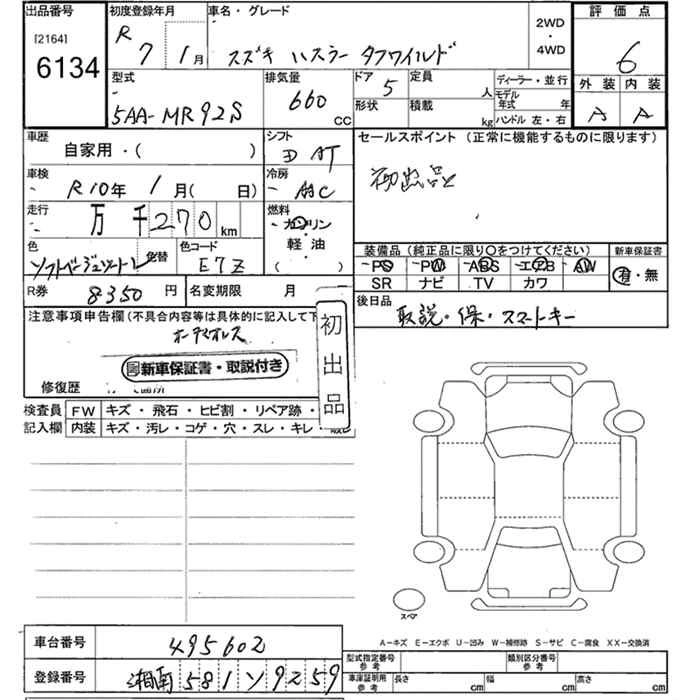 出品番号 初度登録年月 車名・グレード 評価点
[2164] R 7 1月 スズキ ハスラー タフワイルド 2WD・4WD 6
6134
型式 排気量 ドア 定員 ディーラー・並行 外装 内装
5AA-MR92S 660 CC 5 人 モデル年式 年 A A
形状 積載 kg ハンドル 左・右
車歴 シフト セールスポイント(正常に機能するものに限ります)
自家用・( ) AT 初出品
車検 冷房
R10年 1月( 日) AAC
走行 燃料
万 千 270 km ガソリン
軽油
( )
色 色替 色コード 装備品(純正品に限り○をつけてください) 新車保証書
ETZ PS PW ABS エアB AW 有・無
SR ナビ TV カワ
R券 8350 円 名変期限 月 後日品
取説・保・スマートキー
注意事項申告欄(不具合内容等は具体的に記入して下
初出品
新車保証書・取説付き
修復歴
検査員 FW キズ・飛石・ヒビ割・リペア跡・
記入欄 内装 キズ・汚レ・コゲ・穴・スレ・キレ・
スペア
A-キズ E-エクボ U-凹み W-補修跡 S-サビ C-腐食 XX-交換済
車台番号 495602 型式指定番号 参考 類別区分番号 参考
登録番号 湘南 581 ソ 9259 車庫証明用 参考 長さ cm 幅 cm 高さ cm